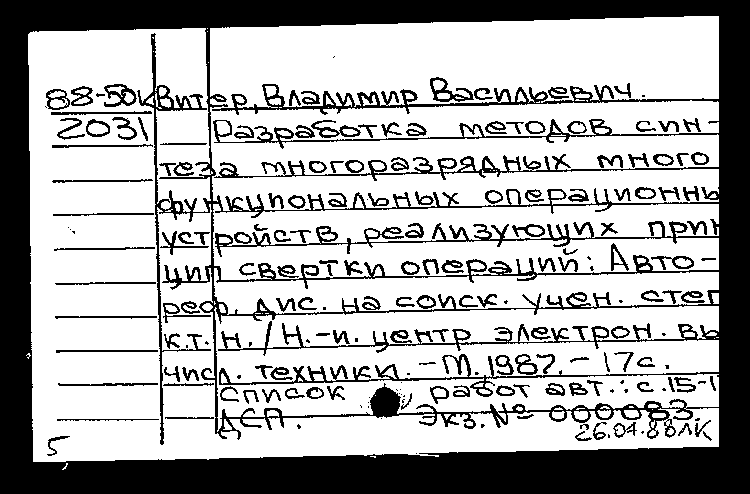 88-50к Витер, Владимир Васильевич.
2031 Разработка методов син-
теза многоразрядных много
функциональных операционны
устройств, реализующих прин
цип свертки операций: Авто-
реф. дис. на соиск. учен. степ
к.т.н. / Н.-и. центр электрон. вы
числ. техники. - М. 1987. - 17с.
Список работ авт.: с. 15-1
ДСП. Экз. № 000083.
26.04.88ЛК
5